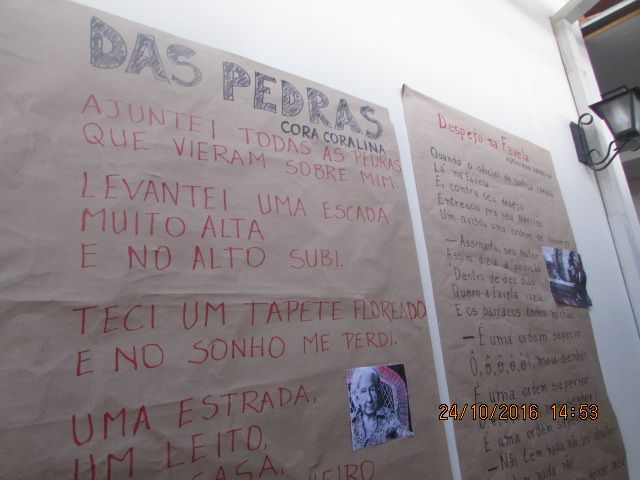 DAS PEDRAS
CORA CORALINA
AJUNTEI TODAS AS PEDRAS
QUE VIERAM SOBRE MIM.
LEVANTEI UMA ESCADA
MUITO ALTA
E NO ALTO SUBI.
TECI UM TAPETE FLOREADO
E NO SONHO ME PERDI.
UMA ESTRADA,
UM LEITO,
UM
CASA,
Despejo na Favela
Quando o oficial de justiça chegou
Lá na favela
E, contra seu desejo
Entregou pra seu Narciso
Um aviso, uma ordem de
— Assinada, seu doutor
Assim dizia a petição
Dentro de dez dias
Quero a favela vazia
E os barracos todos no chão
— É uma ordem superior
Ô, ô, ô, ô, ô!, meu senhor
É uma ordem superior
É uma ordem
— Não tem nada não, seu doutor
tem nada não
24/10/2016 14:53